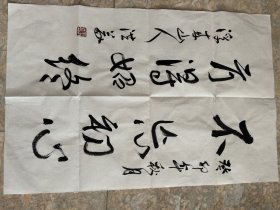 不忘初心
方得始终
癸卯年秋月
山人